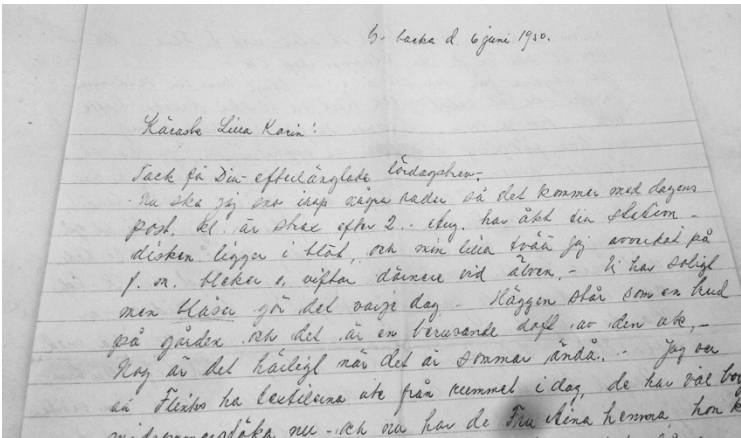 backa d. 6 juni 1950.
Käraste Lilla Karin!
Tack för Din efterlängtade lördagsbrev.
Nu ska jag sno ihop några rader så det kommer med dagens
post. Kl. är strax efter 2. Aug. har åkt till station -
disken ligger i blöt, och min lilla tvätt jag avverkat på
f. m. bleker o. viftar därnere vid älven. - Vi har soligt
men blåser gör det varje dag - Häggen står som en brud
på gården och det är en berusande doft av den ute. -
Nog är det härligt när det är sommar ändå. - Jag ser
att ha textilerna ute från rummet i dag, de har väl
nu - och nu har de Fru Stina hemma, hon